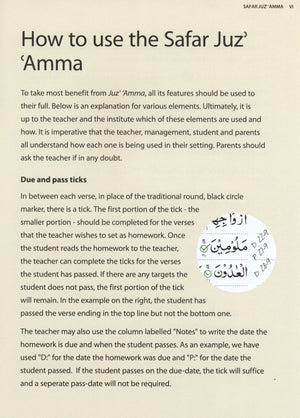 SAFAR JUZʾ ʿAMMA VI
How to use the Safar Juzʾ
ʿAmma
To take most benefit from Juzʾ ʿAmma, all its features should be used to
their full. Below is an explanation for various elements. Ultimately, it is
up to the teacher and the institute which of these elements are used and
how. It is imperative that the teacher, management, student and parents
all understand how each one is being used in their setting. Parents should
ask the teacher if in any doubt.
Due and pass ticks
In between each verse, in place of the traditional round, black circle
marker, there is a tick. The first portion of the tick - the
smaller portion - should be completed for the verses
that the teacher wishes to set as homework. Once
the student reads the homework to the teacher,
the teacher can complete the ticks for the verses
the student has passed. If there are any targets the
student does not pass, the first portion of the tick
will remain. In the example on the right, the student has
passed the verse ending in the top line but not the bottom one.
أَزْوَاجِهِمْ
مَلُومِيْنَ
الْعَدُوْنَ
The teacher may also use the column labelled "Notes" to write the date the
homework is due and when the student passes. As an example, we have
used "D:" for the date the homework was due and "P:" for the date the
student passed. If the student passes on the due-date, the tick will suffice
and a seperate pass-date will not be required.